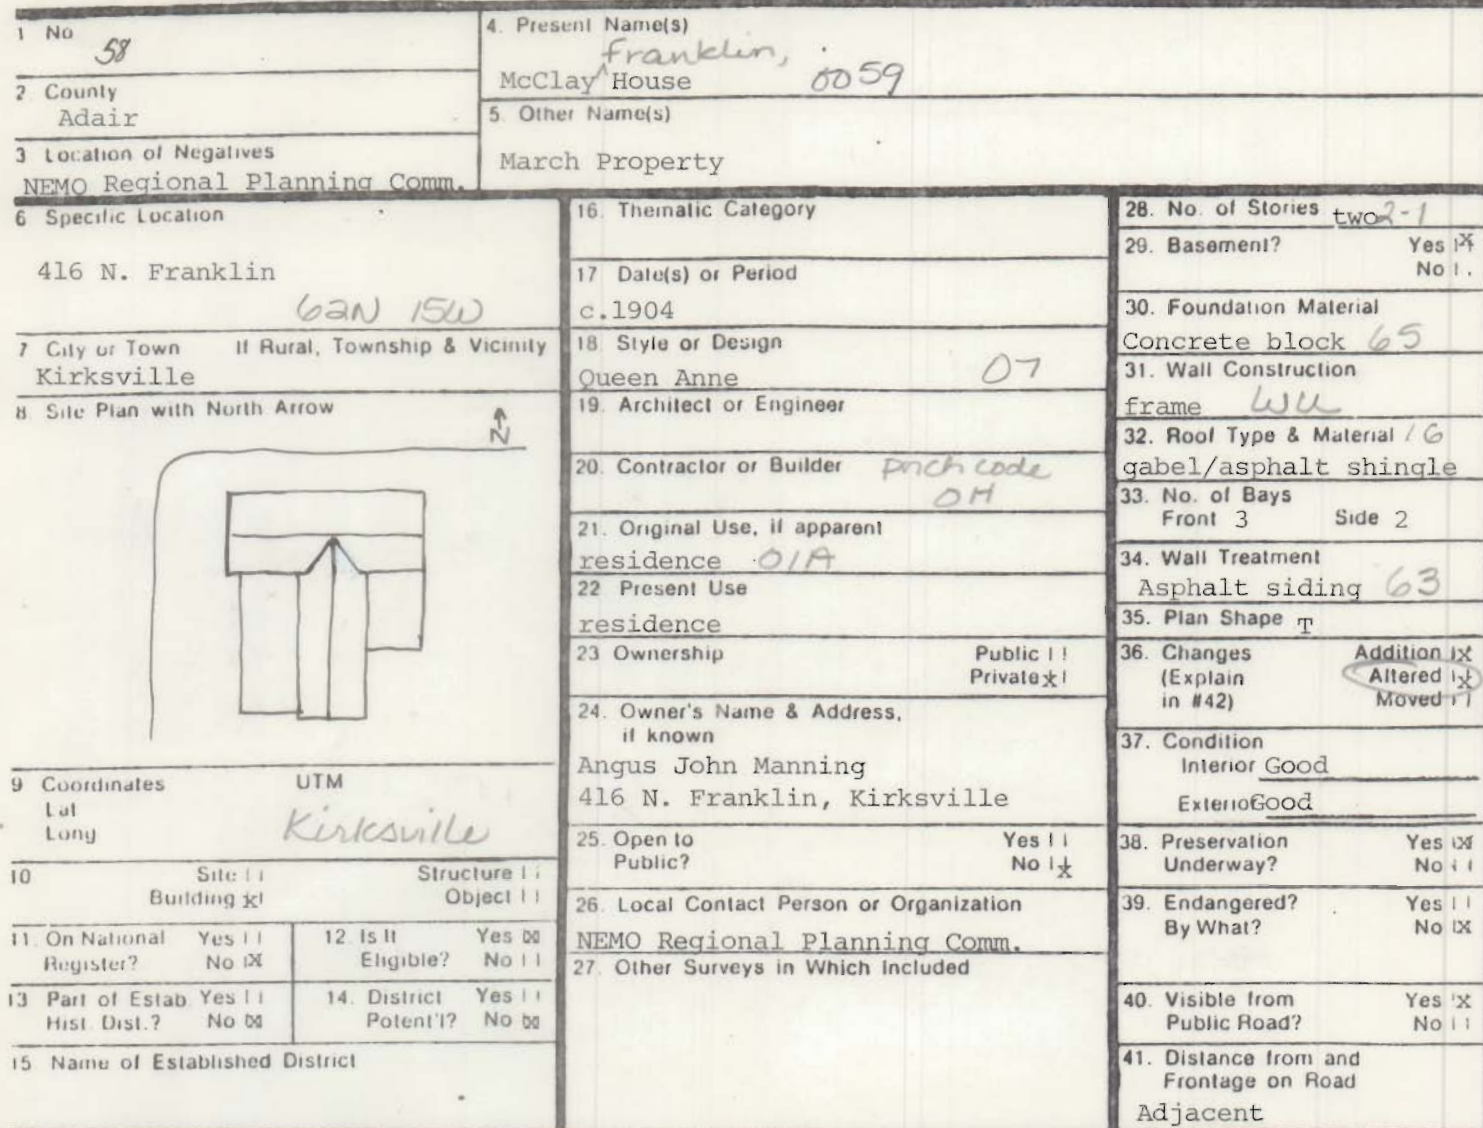 1 No
58
2 County
Adair
3 Location of Negatives
NEMO Regional Planning Comm.
4. Present Name(s)
Franklin,
McClay ^ House 0059
5. Other Name(s)
March Property
6 Specific Location
416 N. Franklin
62N 15W
7 City or Town If Rural, Township & Vicinity
Kirksville
8 Site Plan with North Arrow
N
9 Coordinates UTM
Lat
Long
Kirksville
10 Site | | Structure | |
Building x| Object | |
11. On National Yes | |
Register? No |X
12. Is It Yes |X|
Eligible? No | |
13 Part of Estab Yes | |
Hist. Dist.? No |X|
14. District Yes | |
Potent'l? No |X|
15 Name of Established District
16. Thematic Category
17 Date(s) or Period
c.1904
18 Style or Design
Queen Anne 07
19. Architect or Engineer
20. Contractor or Builder porch code
OH
21. Original Use, if apparent
residence 01A
22 Present Use
residence
23 Ownership Public | |
Private x|
24. Owner's Name & Address,
if known
Angus John Manning
416 N. Franklin, Kirksville
25. Open to Yes | |
Public? No |x
26. Local Contact Person or Organization
NEMO Regional Planning Comm.
27. Other Surveys in Which Included
28. No. of Stories two 2-1
29. Basement? Yes |X
No | .
30. Foundation Material
Concrete block 65
31. Wall Construction
frame WU
32. Roof Type & Material 16
gabel/asphalt shingle
33. No. of Bays
Front 3 Side 2
34. Wall Treatment
Asphalt siding 63
35. Plan Shape T
36. Changes Addition |X
(Explain Altered |x
in #42) Moved | |
37. Condition
Interior Good
Exterio Good
38. Preservation Yes |X|
Underway? No | |
39. Endangered? Yes | |
By What? No |X
40. Visible from Yes |X
Public Road? No | |
41. Distance from and
Frontage on Road
Adjacent